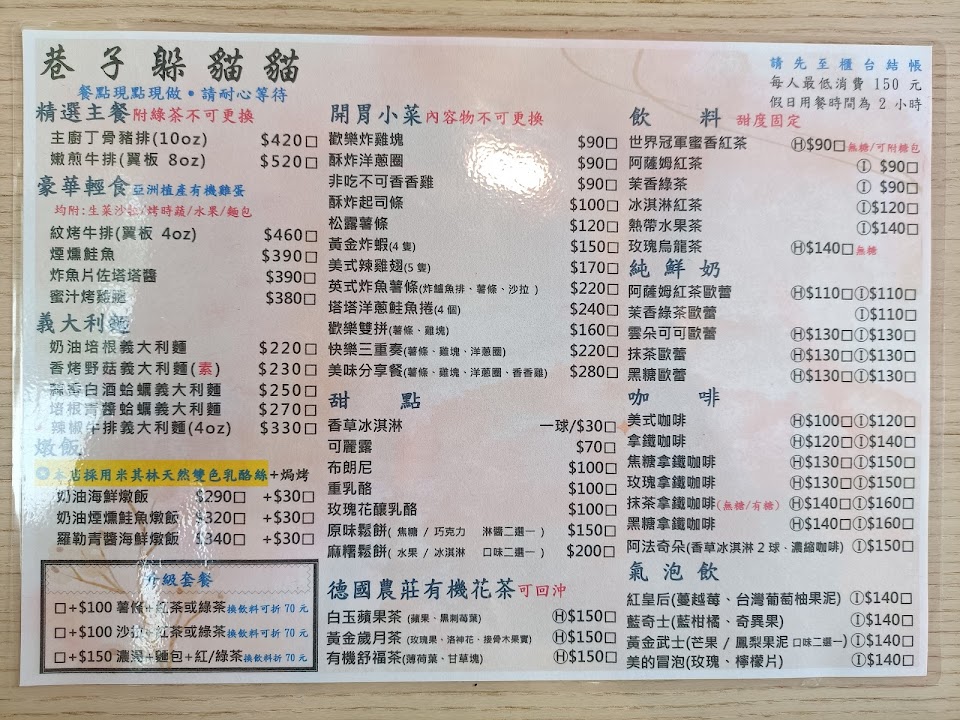 巷子躲貓貓
餐點現點現做•請耐心等待
請先至櫃台結帳
每人最低消費 150 元
假日用餐時間為 2 小時
精選主餐附綠茶不可更換
主廚丁骨豬排(10oz) $420□
嫩煎牛排(翼板 8oz) $520□
豪華輕食亞洲植產有機雞蛋
均附:生菜沙拉/烤時蔬/水果/麵包
紋烤牛排(翼板 4oz) $460□
煙燻鮭魚 $390□
炸魚片佐塔塔醬 $390□
蜜汁烤雞腿 $380□
義大利麵
奶油培根義大利麵 $220□
香烤野菇義大利麵(素) $230□
蒜香白酒蛤蠣義大利麵 $250□
培根青醬蛤蠣義大利麵 $270□
辣椒牛排義大利麵(4oz) $330□
燉飯
本店採用米其林天然雙色乳酪絲+焗烤
奶油海鮮燉飯 $290□ +$30□
奶油煙燻鮭魚燉飯 $320□ +$30□
羅勒青醬海鮮燉飯 $340□ +$30□
升級套餐
□+$100 薯條+紅茶或綠茶換飲料可折 70 元
□+$100 沙拉+紅茶或綠茶換飲料可折 70 元
□+$150 濃湯+麵包+紅/綠茶換飲料可折 70 元
開胃小菜內容物不可更換
歡樂炸雞塊 $90□
酥炸洋蔥圈 $90□
非吃不可香香雞 $90□
酥炸起司條 $100□
松露薯條 $120□
黃金炸蝦(4 隻) $150□
美式辣雞翅(5 隻) $170□
英式炸魚薯條(炸鱸魚排、薯條、沙拉) $220□
塔塔洋蔥鮭魚捲(4 個) $240□
歡樂雙拼(薯條、雞塊) $160□
快樂三重奏(薯條、雞塊、洋蔥圈) $220□
美味分享餐(薯條、雞塊、洋蔥圈、香香雞) $280□
甜 點
香草冰淇淋 一球/$30□
可麗露 $70□
布朗尼 $100□
重乳酪 $100□
玫瑰花釀乳酪 $100□
原味鬆餅( 焦糖 / 巧克力 淋醬二選一 ) $150□
麻糬鬆餅( 水果 / 冰淇淋 口味二選一 ) $200□
德國農莊有機花茶可回沖
白玉蘋果茶 (蘋果、黑刺莓葉) Ⓗ$150□
黃金歲月茶 (玫瑰果、洛神花、接骨木果實) Ⓗ$150□
有機舒福茶(薄荷葉、甘草塊) Ⓗ$150□
飲 料 甜度固定
世界冠軍蜜香紅茶 Ⓗ$90□無糖/可附糖包
阿薩姆紅茶 Ⓘ $90□
茉香綠茶 Ⓘ $90□
冰淇淋紅茶 Ⓘ$120□
熱帶水果茶 Ⓘ$140□
玫瑰烏龍茶 Ⓗ$140□無糖
純鮮奶
阿薩姆紅茶歐蕾 Ⓗ$110□Ⓘ$110□
茉香綠茶歐蕾 Ⓘ$110□
雲朵可可歐蕾 Ⓗ$130□Ⓘ$130□
抹茶歐蕾 Ⓗ$130□Ⓘ$130□
黑糖歐蕾 Ⓗ$130□Ⓘ$130□
咖 啡
美式咖啡 Ⓗ$100□Ⓘ$120□
拿鐵咖啡 Ⓗ$120□Ⓘ$140□
焦糖拿鐵咖啡 Ⓗ$130□Ⓘ$150□
玫瑰拿鐵咖啡 Ⓗ$130□Ⓘ$150□
抹茶拿鐵咖啡(無糖/有糖) Ⓗ$140□Ⓘ$160□
黑糖拿鐵咖啡 Ⓗ$140□Ⓘ$160□
阿法奇朵(香草冰淇淋 2 球、濃縮咖啡) Ⓘ$150□
氣泡飲
紅皇后(蔓越莓、台灣葡萄柚果泥) Ⓘ$140□
藍奇士(藍柑橘、奇異果) Ⓘ$140□
黃金武士(芒果 / 鳳梨果泥 口味二選一) Ⓘ$140□
美的冒泡(玫瑰、檸檬片) Ⓘ$140□